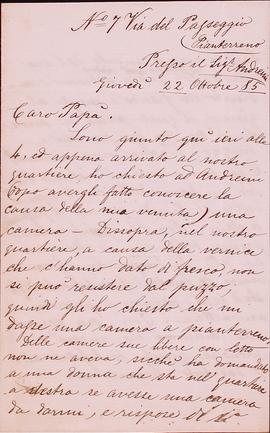 Nº 7 Via del Passeggio
Pianterreno
Presso il Sigr. Andreini
Giovedì 22 Ottobre 85
Caro Papà.
Sono giunto qui ieri alle
4, ed appena arrivato al nostro
quartiere, ho chiesto ad Andreini
(dopo avergli fatto conoscere la
causa della mia venuta) una
camera – Dissopra, nel nostro
quartiere, a causa della vernice
che c'hanno dato di fresco, non
si può resistere dal puzzo;
quindi gli ho chiesto che mi
dasse una camera a pianterreno.
Delle camere sue libere con letto
non ne aveva, sicchè ha domandato
a una donna che sta nel quartiere
a destra se avesse una camera
da darmi, e rispose di sì